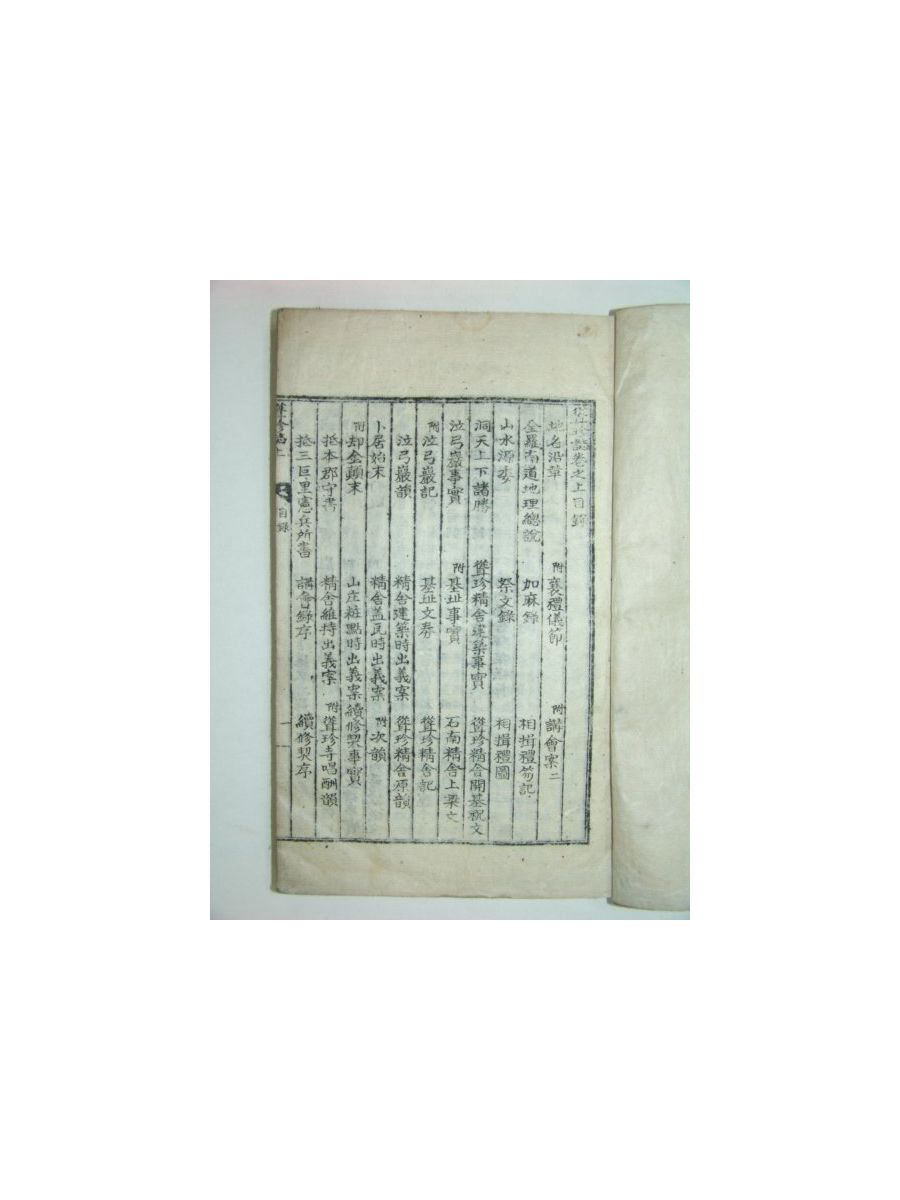 聳珍誌卷之上目錄
地名沿革 附襄禮儀節 附講會案二
全羅南道地理總說 加麻錄 相揖禮笏記
山水源委 祭文錄 相揖禮圖
洞天上下諸勝 聳珍精舍建築事實 聳珍精舍開基祝文
泣弓巖事實 附基址事實 石南精舍上梁文
附泣弓巖記 基址文券 聳珍精舍記
泣弓巖韻 精舍建築時出義案 聳珍精舍原韻
卜居始末 精舍蓋瓦時出義案 附次韻
附却金顚末 山庄粧點時出義案 續修契事實
抵本郡守書 精舍維持出義案 附聳珍寺唱酬韻
抵三巨里憲兵所書 講會錄序 續修契序
聳珍誌上 目錄 一